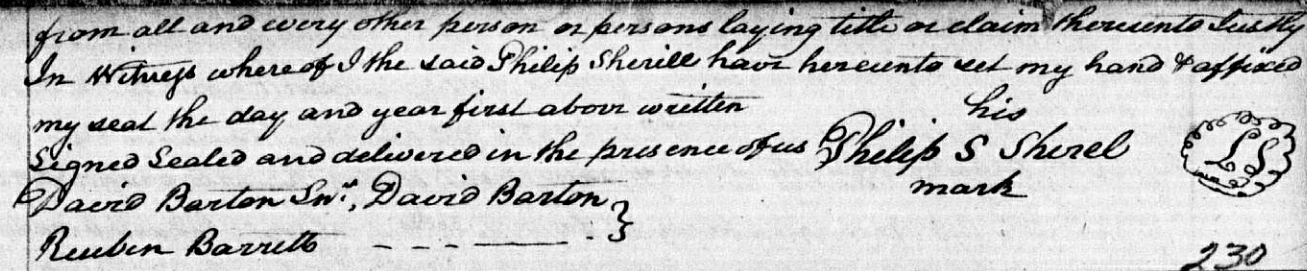 from all and every other person or persons laying title or claim thereunto Justly
In Witness whereof I the said Philip Sherill have hereunto set my hand & affixed
my seal the day and year first above written
his
Signed Sealed and delivered in the presence of us Philip S Sherel LS
mark
David Barton Snr, David Barton }
Reuben Barrett
230